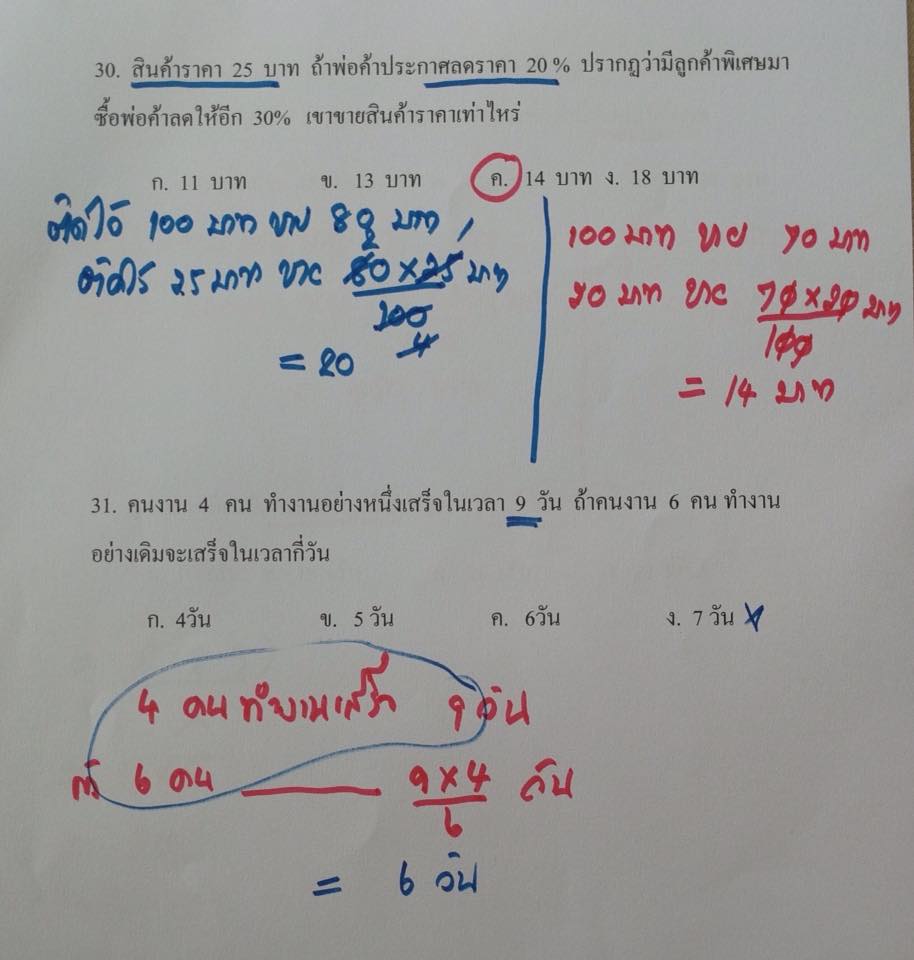 30. สินค้าราคา 25 บาท ถ้าพ่อค้าประกาศลดราคา 20% ปรากฏว่ามีลูกค้าพิเศษมา
ซื้อพ่อค้าลดให้อีก 30% เขาขายสินค้าราคาเท่าไหร่
ก. 11 บาท ข. 13 บาท ค. 14 บาท ง. 18 บาท
100 บาท ขาย 80 บาท
25 บาท ขาย 80 × 25 บาท
100
4
= 20
100 บาท ขาย 70 บาท
20 บาท ขาย 70 × 20 บาท
100
= 14 บาท
31. คนงาน 4 คน ทำงานอย่างหนึ่งเสร็จในเวลา 9 วัน ถ้าคนงาน 6 คน ทำงาน
อย่างเดิมจะเสร็จในเวลากี่วัน
ก. 4วัน ข. 5 วัน ค. 6วัน ง. 7 วัน
4 คน ทำงานเสร็จ 9 วัน
6 คน 9 × 4 วัน
6
= 6 วัน